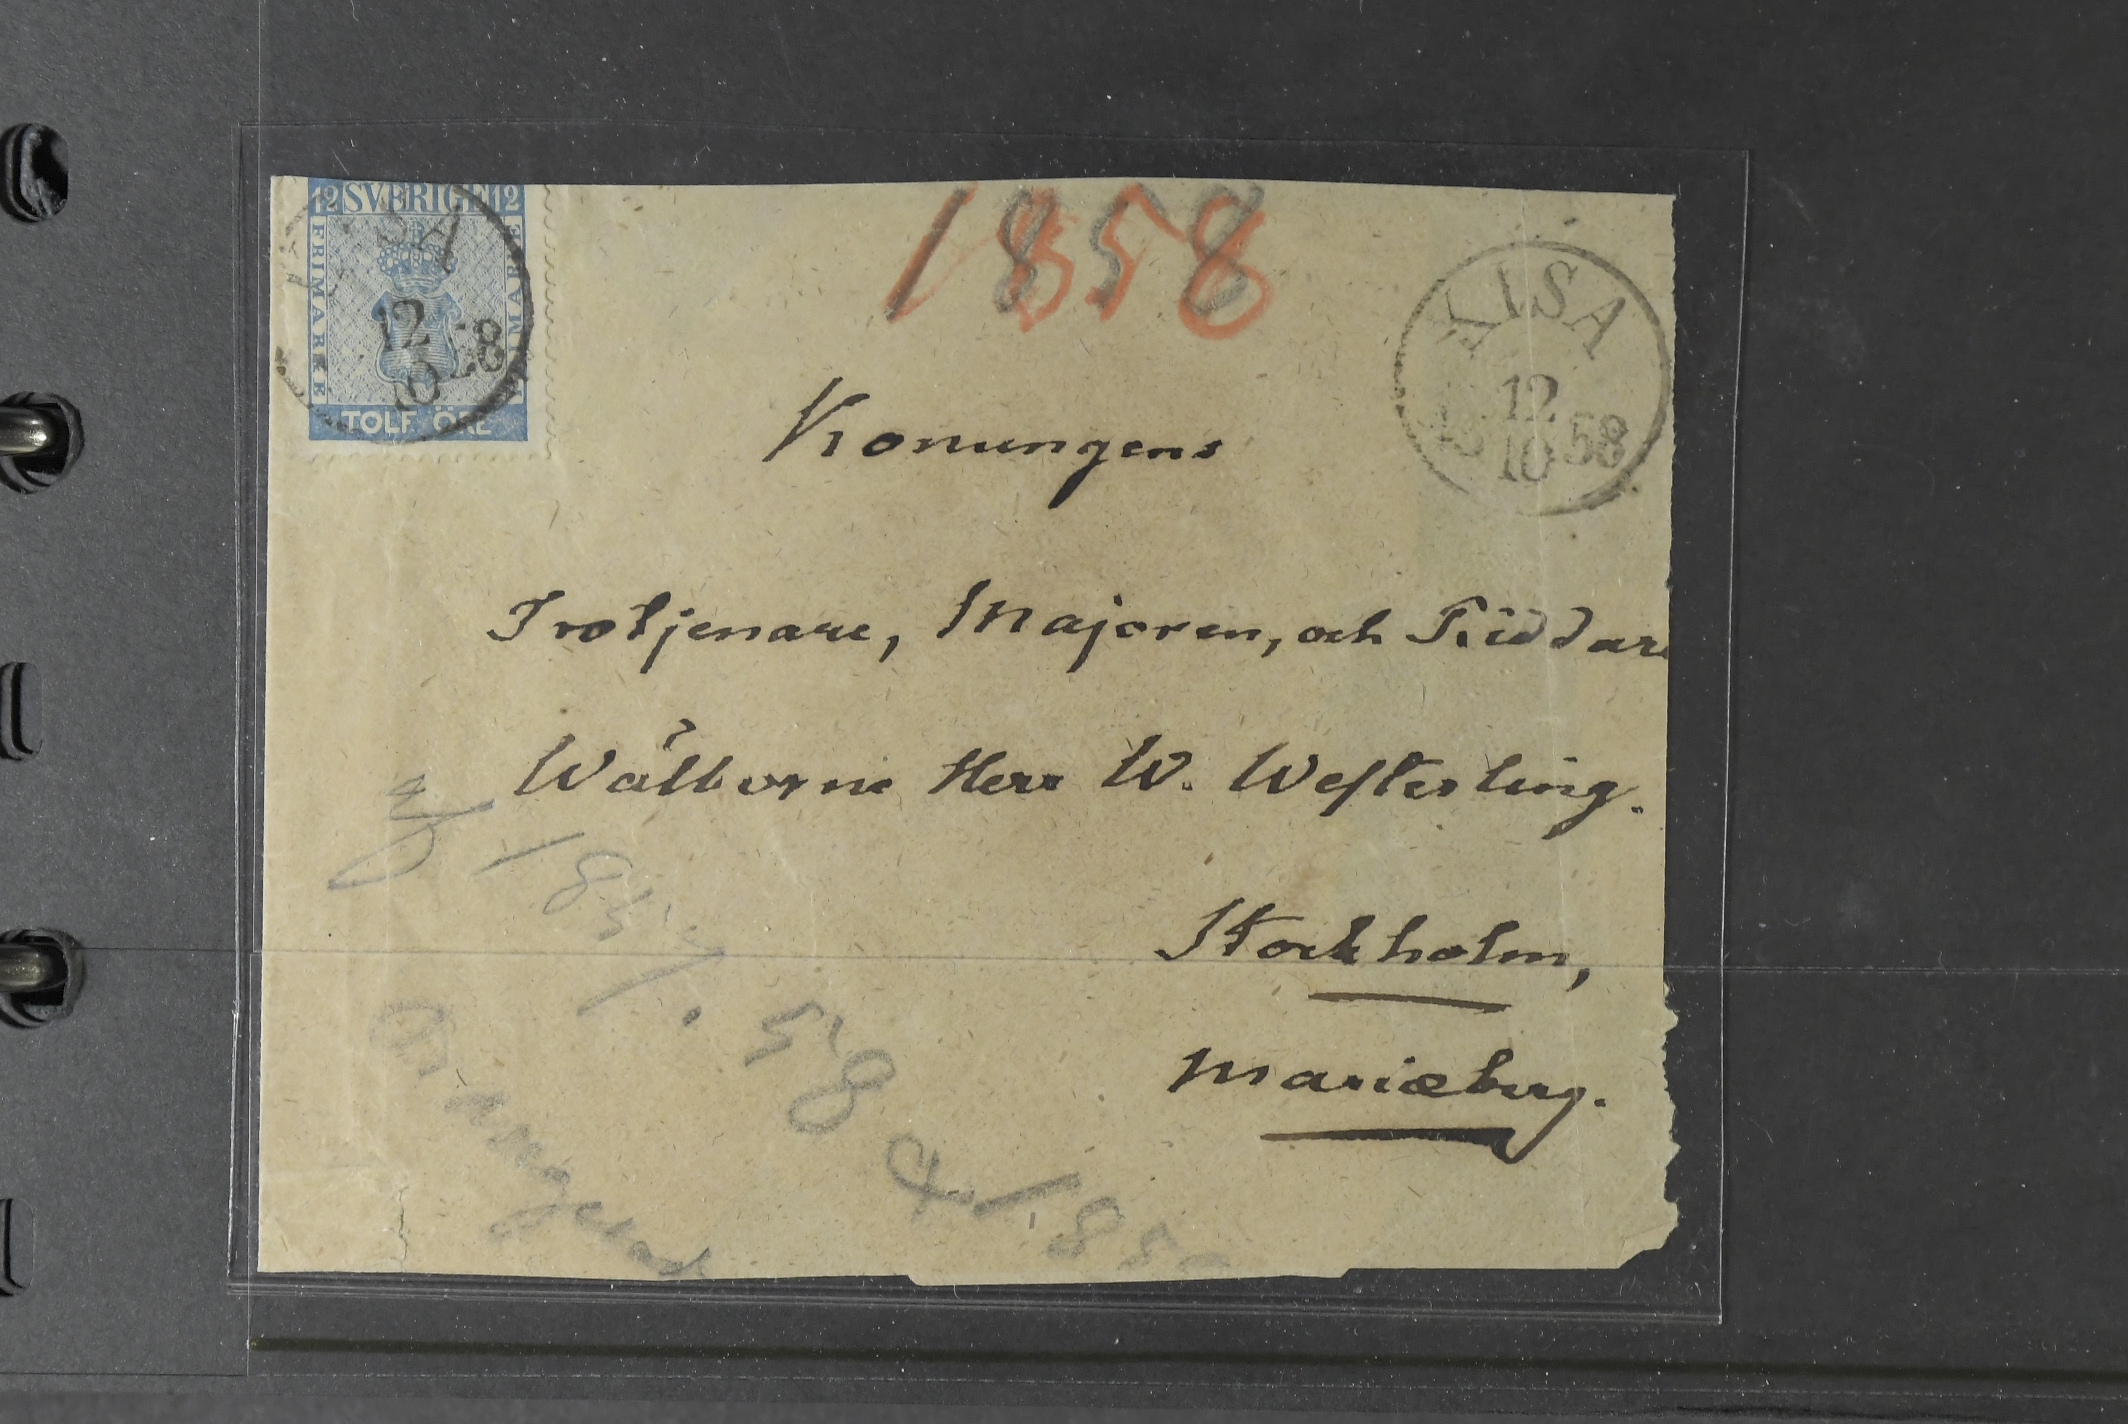 12 SVERIGE 12
FRIMÄRKE
FRIMÄRKE
TOLF ÖRE
KISA
12
10
58
1858
KISA
12
10 58
Konungens
Trotjenare, Majoren, och Riddare
Wälborne Herr W. Westerling.
Stockholm,
Mariæberg.
58